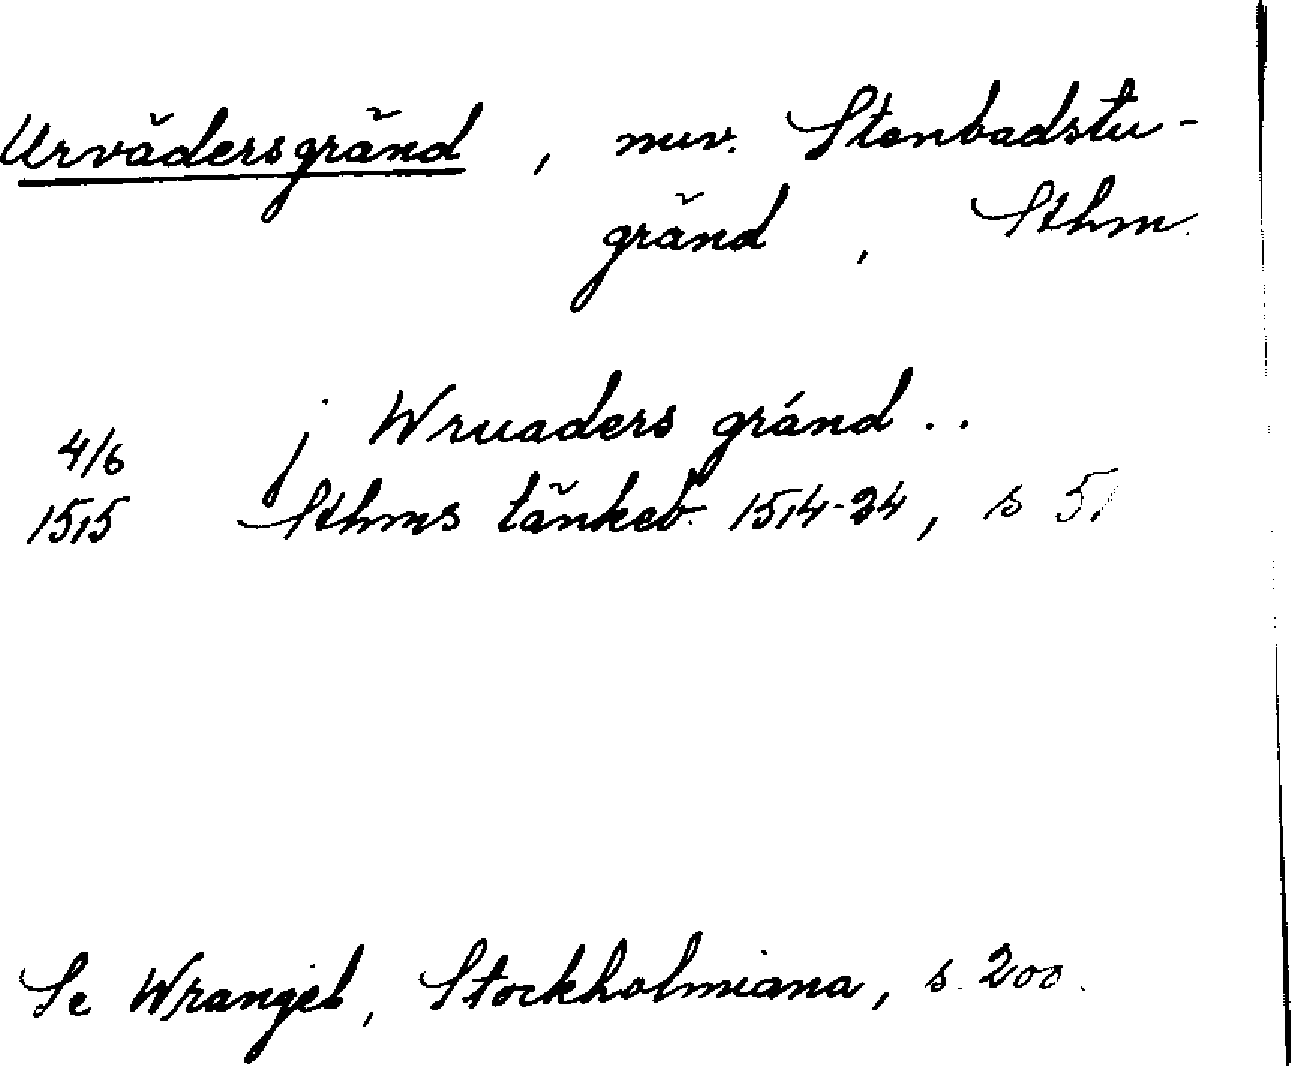 Urvädersgränd, nuv. Stenbadstu-
gränd, Sthm.
4/6 j Wruaders gränd..
1515 Sthms tänkeb. 1514-24, s 51
Se Wrangel, Stockholmiana, s. 200.